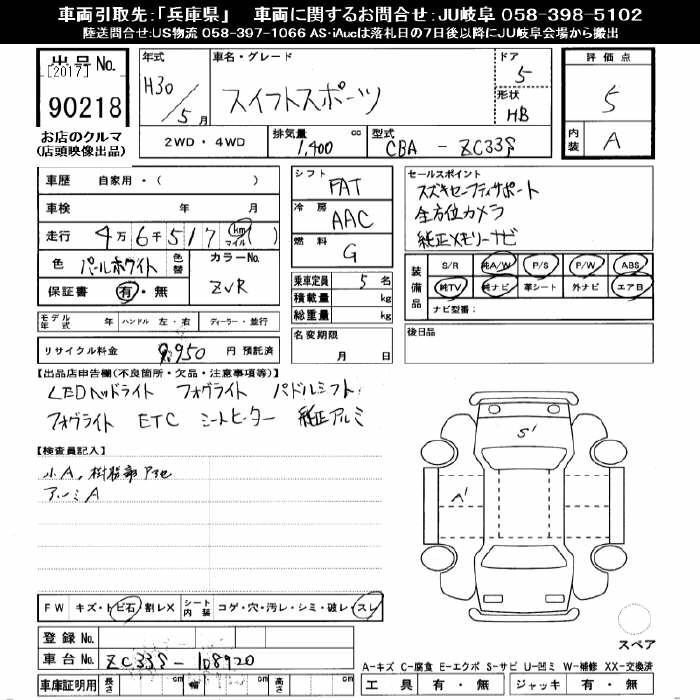 車両引取先：「兵庫県」　車両に関するお問合せ：JU岐阜 058-398-5102
陸送問合せ:US物流 058-397-1066 AS･iAucは落札日の7日後以降にJU岐阜会場から搬出
出品No.
[2017]
90218
お店のクルマ
(店頭映像出品)
年式
H30/5月
車名・グレード
スイフトスポーツ
ドア
5
形状
HB
2WD ・ 4WD
排気量 cc
1,400
型式
CBA - ZC33S
評価点
5
内装
A
車歴 自家用・( )
車検 年 月
走行 4万6千517 km マイル ( )
色 パールホワイト 色替
カラーNo.
ZVR
保証書 有・無
シフト
FAT
冷房
AAC
燃料
G
乗車定員 5 名
積載量 kg
総重量 kg
名変期限
月 日
セールスポイント
スズキセーフティサポート
全方位カメラ
純正メモリーナビ
装備品
S/R 純A/W P/S P/W ABS
純TV 純ナビ 革シート 外ナビ エアB
ナビ型番：
後日品
モデル年式 年 ハンドル 左・右 ディーラー・並行
リサイクル料金 9,950 円 預託済
【出品店申告欄(不良箇所・欠品・注意事項等)】
LEDヘッドライト フォグライト パドルシフト
フォグライト ETC シートヒーター 純正アルミ
【検査員記入】
小A,
アルミA
S'
A'
FW キズ・トビ石・割レX シート内装 コゲ・穴・汚レ・シミ・破レ・スレ
登録No.
車台No. ZC33S-108920
車庫証明用 長さ cm 幅 cm 高さ cm
スペア
A-キズ C-腐食 E-エクボ S-サビ U-凹ミ W-補修 XX-交換済
工具 有・無 ジャッキ 有・無